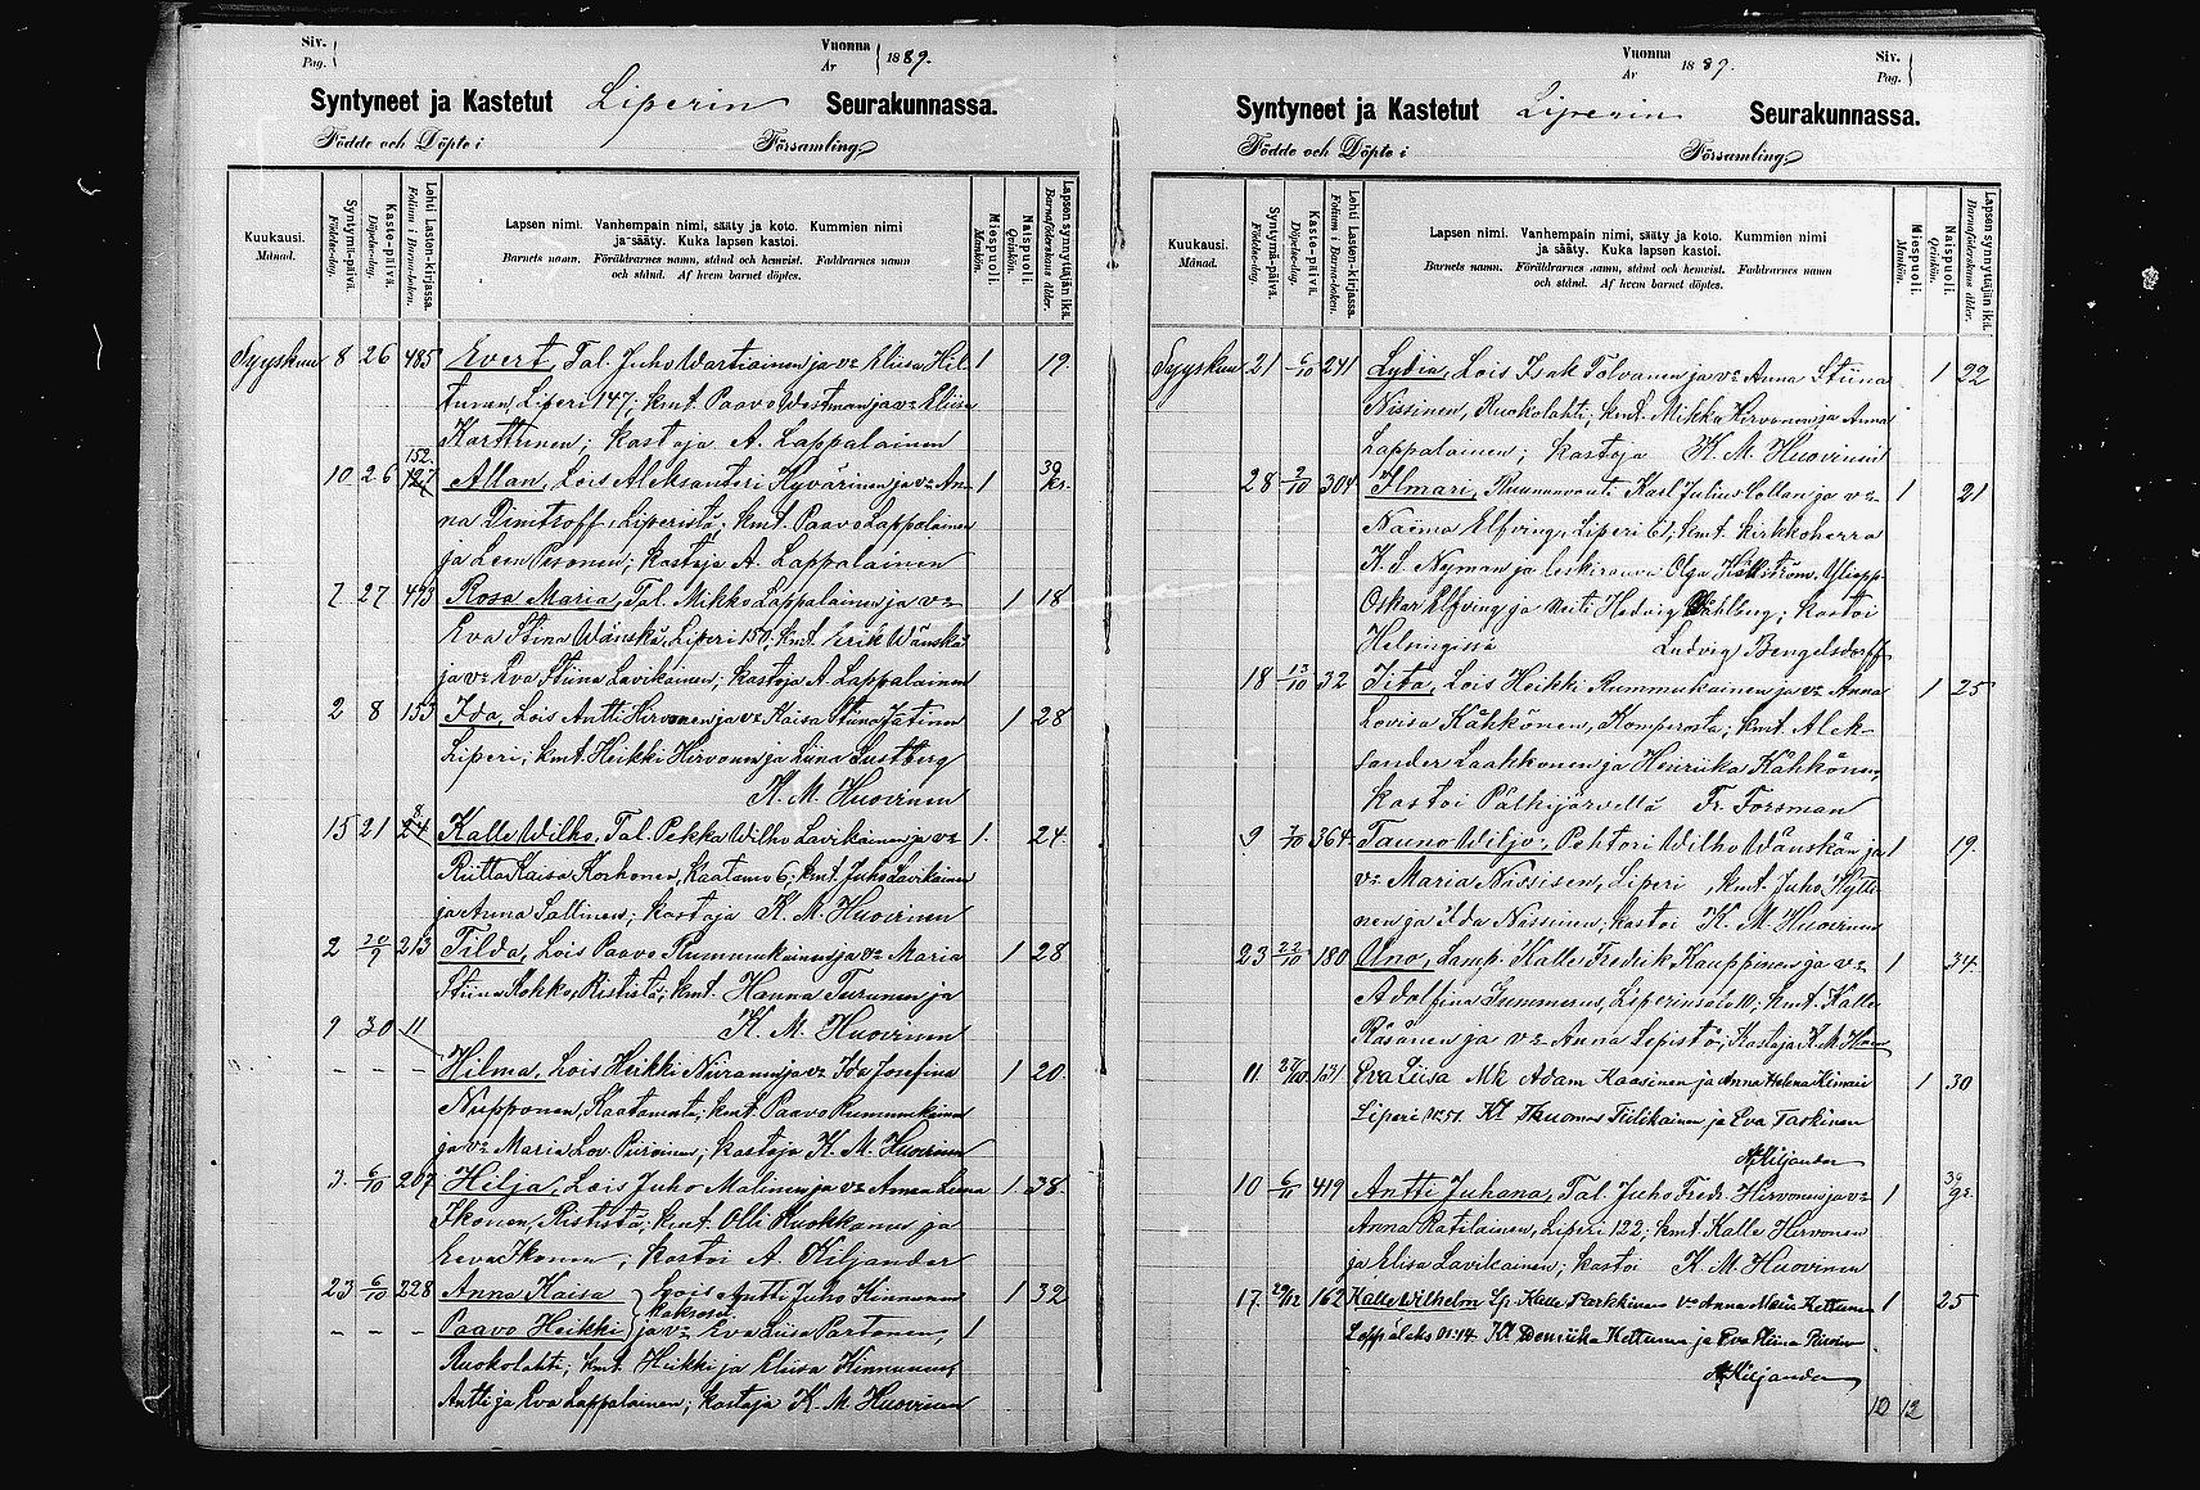 Siv.
Pag.
Vuonna
År
1889.
Syntyneet ja Kastetut Liperin Seurakunnassa.
Födde och Döpte i Församling
Kuukausi.
Månad.
Syntymä-päivä.
Födelse-dag.
Kaste-päivä.
Döpelse-dag.
Lehti Lasten-kirjassa.
Folium i Barna-boken.
Lapsen nimi. Vanhempain nimi, sääty ja koto. Kummien nimi
ja sääty. Kuka lapsen kastoi.
Barnets namn. Föräldrarnes namn, stånd och hemvist. Faddrarnes namn
och stånd. Af hvem barnet döptes.
Miespuoli.
Mankön.
Naispuoli.
Qvinkön.
Lapsen synnyttäjän ikä.
Barnaföderskans ålder.
Syyskuu 8 26 485 Evert, Tal. Juho Wartiainen ja vo Eliisa Hil- 1 19.
tunen, Liperi 147; kmt. Paavo Westman ja vo Eliisa
Karttunen; kastaja A. Lappalainen
152.
10 26 127 Allan, Lois Aleksanteri Hyvärinen ja vo An- 1 39 kr.
na Dimitroff, Liperistä; kmt. Paavo Lappalainen
ja Leena Pesonen; kastaja A. Lappalainen
7 27 493 Rosa Maria, Tal. Mikko Lappalainen ja vo 1 18
Eva Stina Wänskä, Liperi 150; kmt. Erik Wänskä
ja vo Eva Stiina Lavikainen; kastaja A. Lappalainen
2 8 153 Ida, Lois Antti Hirvonen ja vo Kaisa Stiina Jätinen 1 28
Liperi; kmt. Heikki Hirvonen ja Liina Lustberg
K. M. Huovinen
8
15 21 24 Kalle Wilho, Tal. Pekka Wilho Lavikainen ja vo 1. 24.
Riitta Kaisa Korhonen, Kaatamo 6; kmt. Juho Lavikainen
ja Anna Sallinen; kastaja K. M. Huovinen
2 30/9 213 Tilda, Lois Paavo Rummukainen ja vo Maria 1 28
Stiina Kokko, Rististä; kmt. Hanna Turunen ja
9 30 11 K. M. Huovinen
– – – Hilma, Lois Heikki Niiranen ja vo Ida Josefina 1 20.
Nupponen, Kaatamosta; kmt. Paavo Rummukainen
ja vo Maria Lov. Piiroinen; kastaja K. M. Huovinen
3. 6/10 207 Hilja, Lois Juho Malinen ja vo Anna Leena 1. 38.
Ikonen, Rististä; kmt. Olli Kuokkanen ja
Eeva Ikonen; kastoi A. Kiljander
23 6/10 228 Anna Kaisa Lois Antti Juho Kinnunen 1 32
kaksoset.
– – – Paavo Heikki ja vo Eva Liisa Partanen, 1
Ruokolahti; kmt. Heikki ja Eliisa Kinnunen,
Antti ja Eva Lappalainen; kastaja K. M. Huovinen
Vuonna
År
1889.
Siv.
Pag.
Syntyneet ja Kastetut Liperin Seurakunnassa.
Födde och Döpte i Församling
Kuukausi.
Månad.
Syntymä-päivä.
Födelse-dag.
Kaste-päivä.
Döpelse-dag.
Lehti Lasten-kirjassa.
Folium i Barna-boken.
Lapsen nimi. Vanhempain nimi, sääty ja koto. Kummien nimi
ja sääty. Kuka lapsen kastoi.
Barnets namn. Föräldrarnes namn, stånd och hemvist. Faddrarnes namn
och stånd. Af hvem barnet döptes.
Miespuoli.
Mankön.
Naispuoli.
Qvinkön.
Lapsen synnyttäjän ikä.
Barnaföderskans ålder.
Syyskuu 21 6/10 241 Lydia, Lois Isak Tolvanen ja vo Anna Stiina 1 22
Nissinen, Ruokolahti; kmt. Mikko Hirvonen ja Anna
Lappalainen; kastaja K. M. Huovinen
28 2/10 304 Ilmari, Ruununvouti Karl Julius Collan ja vo 1 21
Naëma Elfving, Liperi 61; kmt. kirkkoherra
K. S. Nyman ja leskirouva Olga Hällström, Yliopp.
Oskar Elfving ja neiti Hedvig Wåhlberg; kastoi
Helsingissä Ludvig Bengelsdorff
18 13/10 32 Iita, Lois Heikki Rummukainen ja vo Anna 1 25
Lovisa Kähkönen, Komperosta; kmt. Alek-
sander Laakkonen ja Henriika Kähkönen,
kastoi Pälkijärvellä Fr. Forsman
9 7/10 364 Tauno Wiljo, Pehtori Wilho Wänskän ja 1 19.
vo Maria Nissisen, Liperi, kmt. Juho Kytti-
nen ja Ida Nissinen; kastoi K. M. Huovinen
23 22/10 180 Uno, Lamp. Kalle Fredrik Kauppinen ja vo 1 34.
Adolfina Gummerus, Liperinsalo 10; kmt. Kalle
Räsänen ja vo Anna Lepistö; Kastaja K. M. Huov
11. 27/10 131 Eva Liisa Mk Adam Kaasinen ja Anna Helena Kimari 1 30
Liperi No 51. Kt Thuomas Tiilikainen ja Eva Taskinen
A Kiljander
10 6/11 419 Antti Juhana, Tal. Juho Fredr. Hirvonen ja vo 1 39 gr.
Anna Ratilainen, Liperi 122; kmt. Kalle Hirvonen
ja Elisa Lavikainen; kastoi K. M. Huovinen
17. 29/12 162 Kalle Wilhelm Lp. Kalle Parkkinen vo Anna Maria Kettunen 1 25
Leppälaks No 14. Kt Henriika Kettunen ja Eva Stiina
A Kiljander
10 12